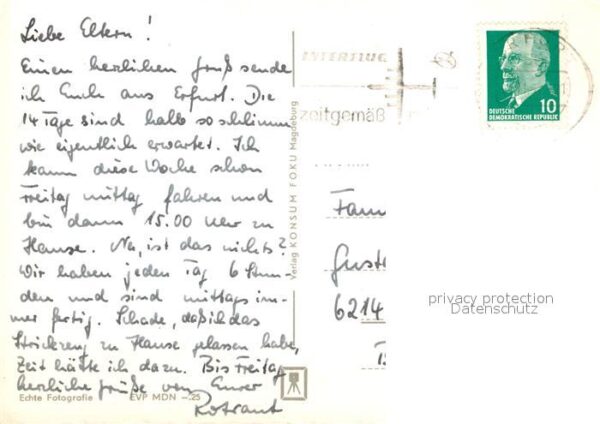 Liebe Eltern!
Einen herzlichen Gruß sende
ich Euch aus Erfurt. Die
14 Tage sind halb so schlimm
wie eigentlich erwartet. Ich
kann diese Woche schon
Freitag mittag fahren und
bin dann 15.00 Uhr zu
Hause. Na, ist das nichts?
Wir haben jeden Tag 6 Stun-
den und sind mittags im-
mer fertig. Schade, daß ich das
Strickzeug zu Hause gelassen habe,
Zeit hätte ich dazu. Bis Freitag
herzliche Grüße von Eurer
Rotraut
Echte Fotografie EVP MDN –.25
Verlag KONSUM FOKU Magdeburg
INTERFLUG
zeitgemäß
10
DEUTSCHE
DEMOKRATISCHE REPUBLIK
Fam
Gust
6214
privacy protection
Datenschutz